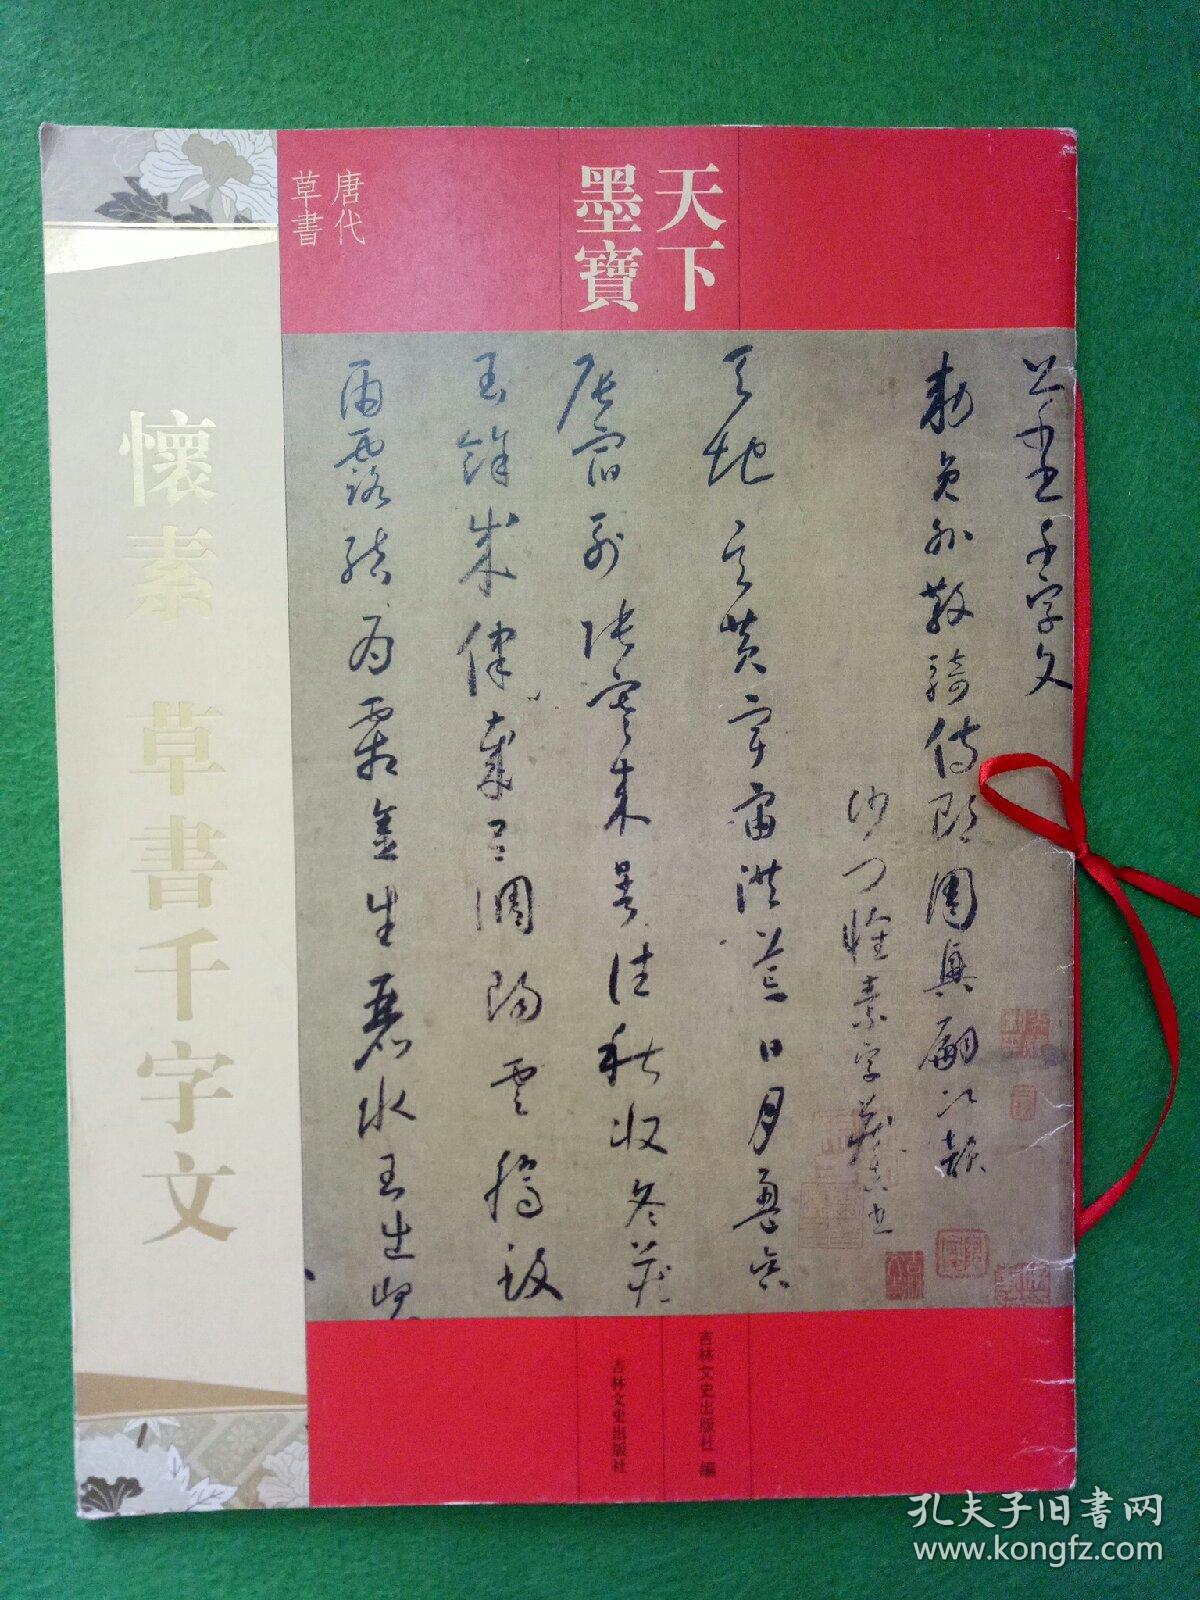 天下
墨寶
唐代
草書
懷素 草書千字文
千字文
敕員外散騎侍郎周興嗣次韻
沙門懷素字藏真書
天地玄黃宇宙洪荒日月盈昃
辰宿列張寒來暑往秋收冬藏
玉餘成律歲召調陽雲騰致
雨露結為霜金生麗水玉出崐
吉林文史出版社 編
吉林文史出版社
孔夫子旧书网
www.kongfz.com